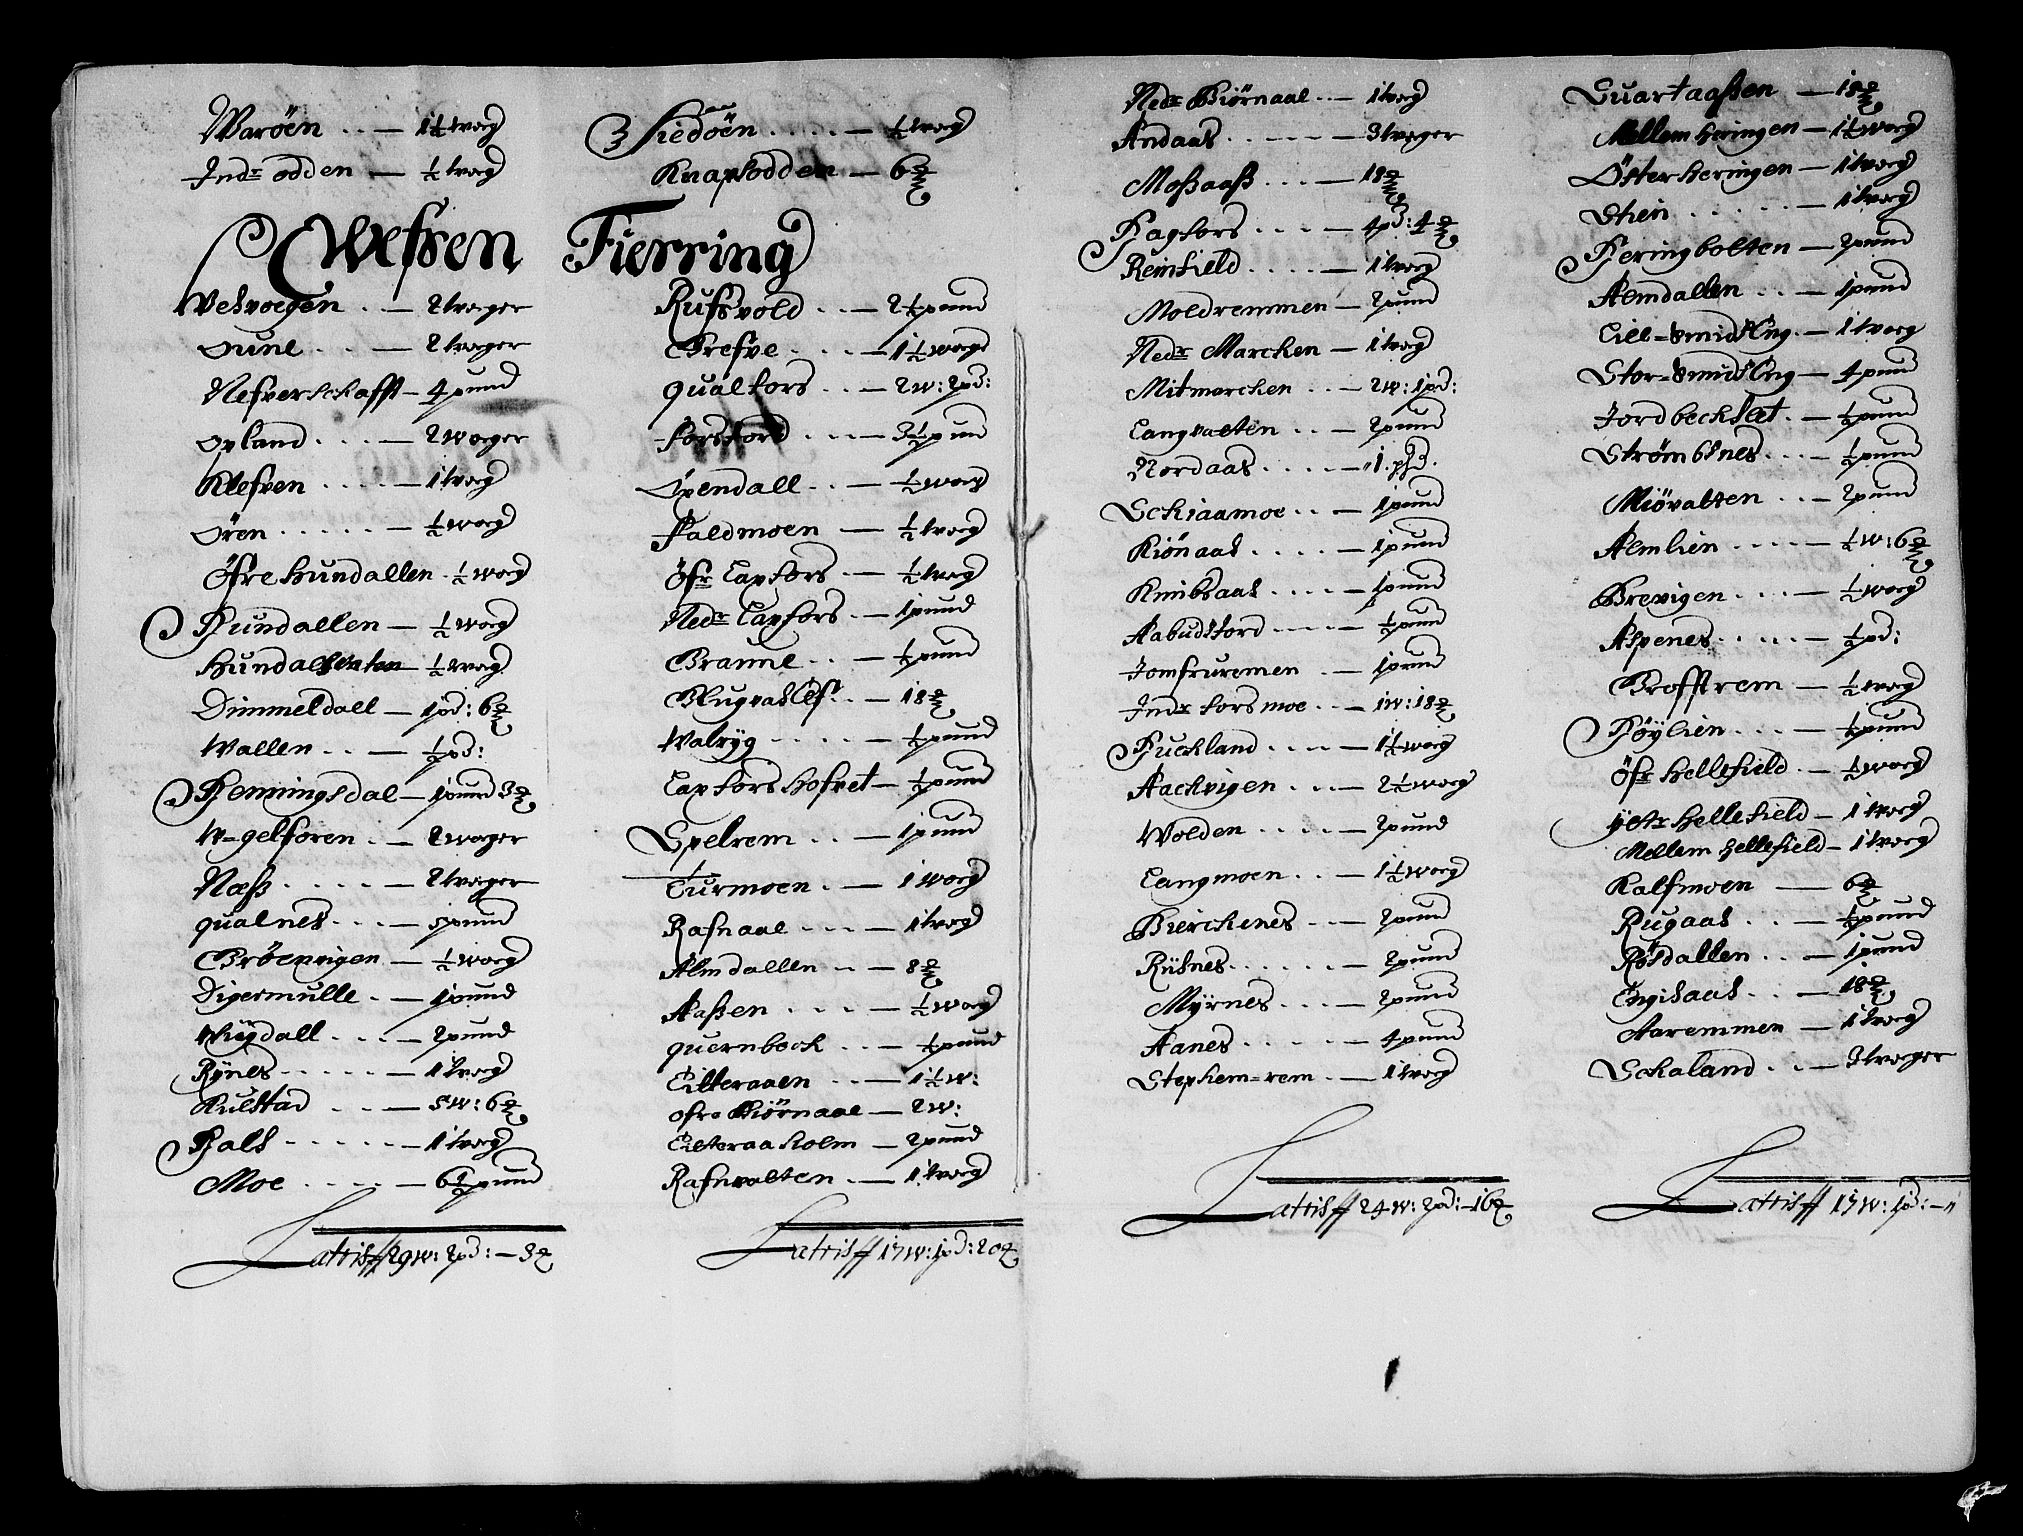 Waröen . . — 1½ woeg
Indr odden — ½ woeg
Hiedöen . . . . . — ½ woeg
Knapsodden — 6 ℔
Wefsen Fierring
Vesvoegen . . — 2 woeger
Sune . . . — 2 woeger
Nefverschafft — 4 pund
opland . . . — 2 woeger
Klefven . . . . . — 1 woeg
Ören . . . . . — ½ woeg
Öfre hundallen . ½ woeg
Hundallen — ½ woeg
Hundalsvaten — ½ woeg
Dimmeldall — 1 pd: 6 ℔
Wallen . . . — ½ pd:
Henningsdal — 1 pund 3 ℔
W-gelforen — 2 woger
Næss . . . . . — 2 woeger
qualnes . . . — 5 pund
Gröevvigen — ½ woeg
Digermulle . — 1 pund
Wiigdall . . . . — 2 pund
Rÿnes . . . . . — 1 woeg
Kulstad . . . — 5 w: 6 ℔
Hals . . . . . . — 1 woeg
Moe . . . . — 6½ pund
Lattis ff 29 w: 2 pd: — 3 ℔
Rufsvold . . — 2½ pund
Grefve . . . — 1½ woge
qualfors . . . — 2 w: 2 pd:
forsiord . . . — 3½ pun
Svendall . . — ½ woeg
Haldmoen — ½ woeg
Öfr Capfors . — ½ woeg
Nedr Capfors — 1 pund
Granne . . — ½ pund
Glugvaslef . . — 18 ℔
Walrÿg . . . . — ½ pund
Capfors hofvet — ½ pund
Spelrem . . — 1 pund
Turmoen . — 1 woeg
Rafnaal . . . — 1 woeg
Almdallen . . — 8 ℔
Aassen . . . . — ½ woeg
quernbeck . . — ½ pund
Eilteraaen . . — 1½ w:
ofre Biörnaal — 2 w:
Eilteraaholm — 2 pund
Rafnvalten . — 1 woeg
Lattis ff 17 w: 1 pd: 20 ℔
Nedr Biörnaal . . — 1 woeg
Andaas . . . . . . — 3 woeger
Mossaass . . . — 18 ℔
Hagfors . . . . — 4 pd: 4 ℔
Reinfield . . . . — 1 woeg
Moldremmen — 2 pund
Nedr Marcken — 1 woeg
Mitmarcken — 2 w: 1 pd:
Langvatten . . — 2 pund
Nordaas . . . . . — 1 . pd.
Schiaamoe . . — 1 pund
Kiönaas . . . . . — 1 pund
Knibsaas . . . . — 1 pund
Aabudsford . . . . — ½ pund
Jomfruremen . — 1 pund
Indr forsmoe . . — 1 w: 18 ℔
Huckland . . . . — 1½ woeg
Aackvigen . . . — 2½ woeg
Wolden . . . . — 2 pund
Langmoen . . — 1½ woeg
Bierckenes . . — 2 pund
Riisnes . . . . . . — 2 pund
Myrnes . . . — 2 pund
Aanes . . . . . — 4 pund
Stephem-rem . — 1 woeg
Lattis ff 24 w: 2 pd: — 16 ℔
Suartaassen — 18 ℔
Mellem heringen — 1½ woeg
Öster heringen — 1 woeg
Sten . . . . . — 1 woeg
Heringbolten — 2 pund
Almdallen . . — 1 pund
Lill-smidsling . — 1 woeg
Stor-smidsling — 4 pund
Jordbeckslet . — ½ pund
Strömbsnes . . . — ½ pund
Miövalten . . — 2 pund
Almlien . . . . — ½ w: 6 ℔
Brevigen . . . — ½ woeg
Aspenes . . . . . — ½ pd:
Grofftrem — ½ woeg
Höÿlien . . . . — ½ pund
Öfr hellefield . — ½ woeg
ÿtr hellefield — 1 woeg
Mellem hellefield — 1 woeg
Kalfmoen — 6 ℔
Rugaas . . — ½ pund
Rösdallen . . — 1 pund
Engisaas . . . — 18 ℔
Aaremmen — 1 woeg
Schaland . . — 3 woeger
Lattis ff 17 w: 1 pd: — "